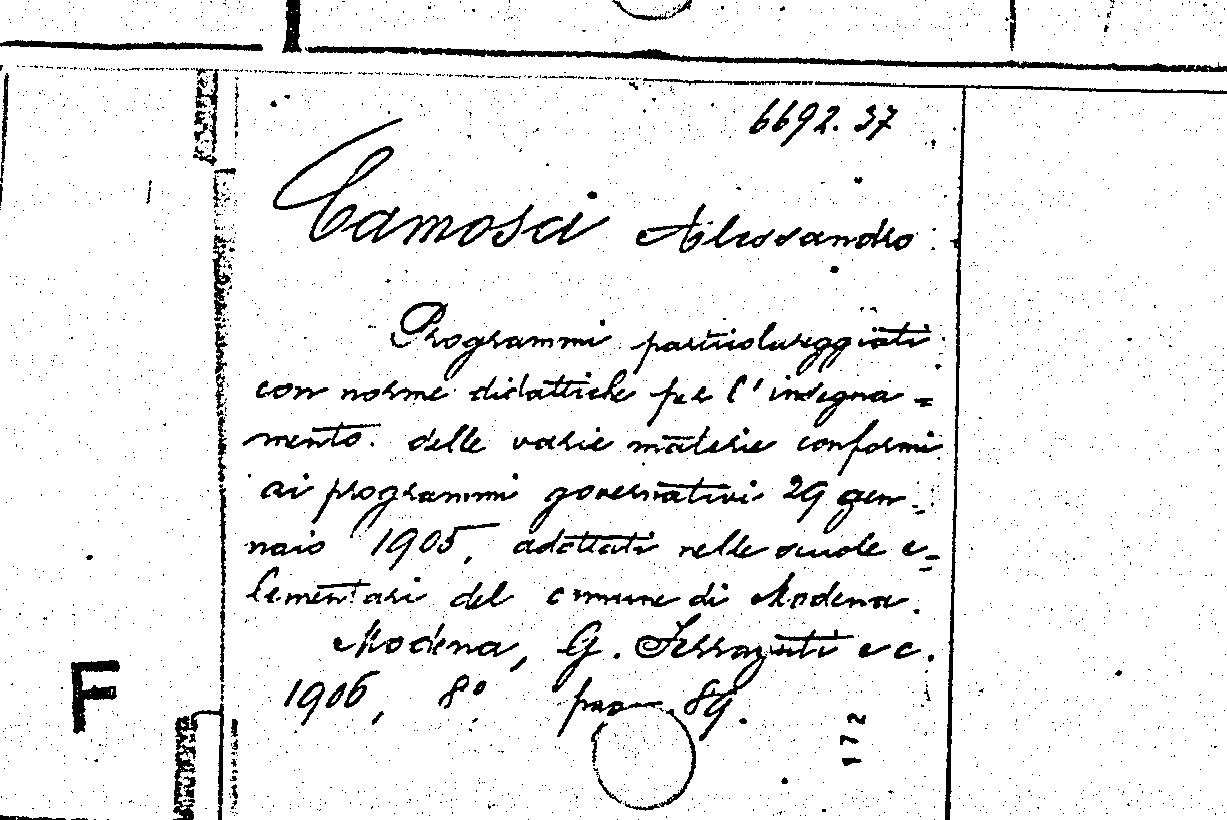 6692.37
Camosci Alessandro
Programmi particolareggiati
con norme didattiche per l'insegna=
mento delle varie materie conformi
ai programmi governativi 29 gen=
naio 1905, adottati nelle scuole e=
lementari del comune di Modena.
Modena, G. Ferraguti e c.
1906, 8° pag. 89.
172
F